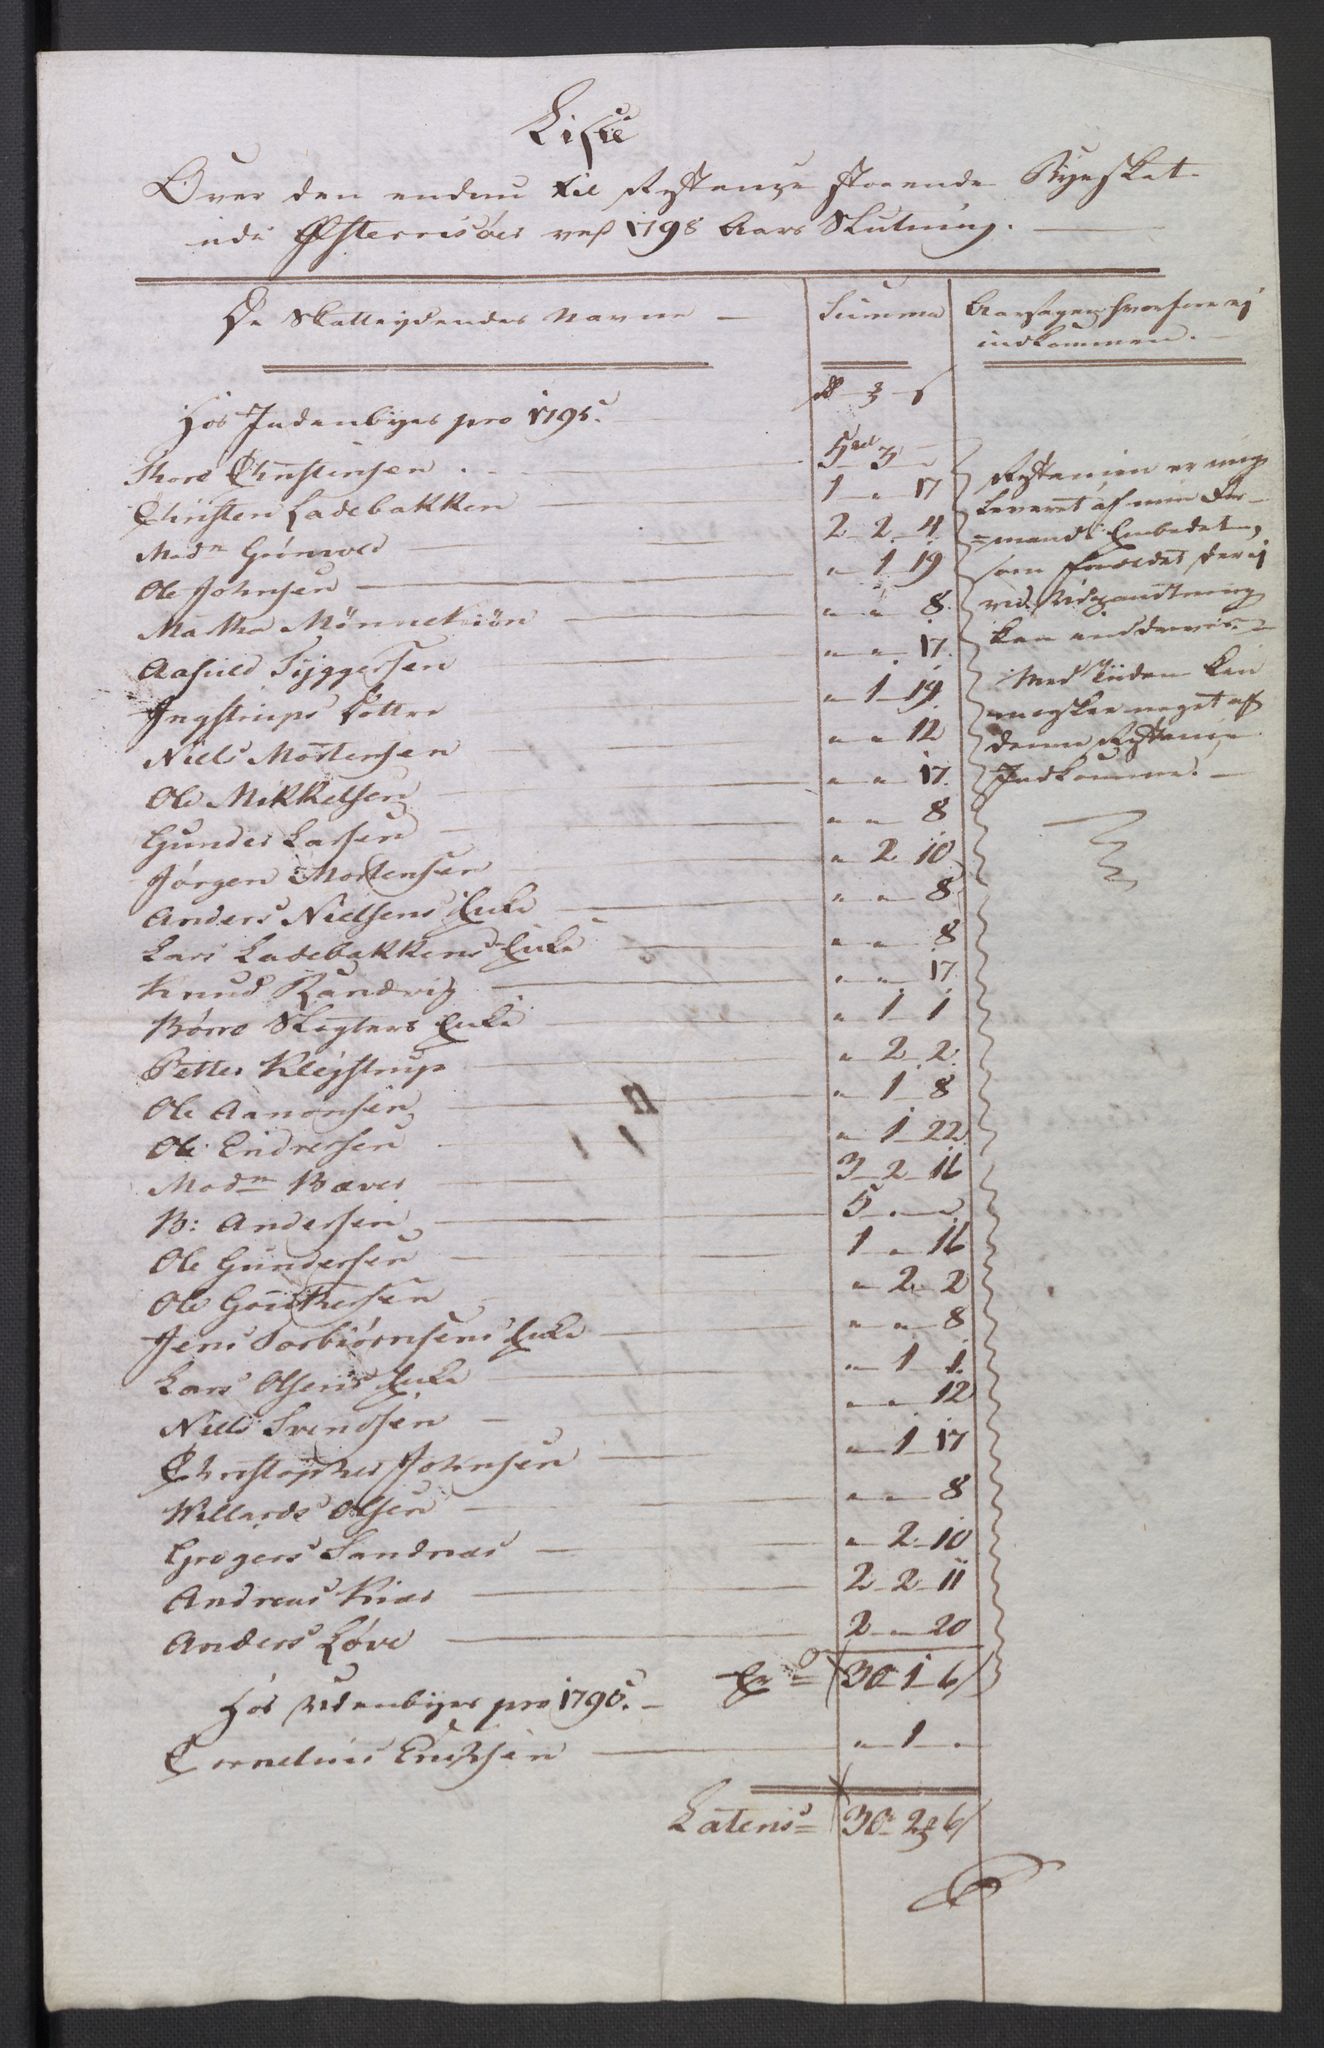 Liste
Over den endnu til Restance staaende Byeskat
udi Østerrisøer ved 1798 Aars Slutning.
De Skatteydendes Navne — Summa Aarsagen hvorfore ej
indkommen.
Hos Indenbyes pro 1795.
Thore Christensen 5 rd 3
Christen Ladebakken — 1 " 17
Madm Grünvold — 2 2 4
Ole Johnsen — " 1 19
Martha Mönnekiön — " " 8
Aasuld Tyggersen — " " 17
Ingstrups Döttre " 1 19
Niels Mortensen — " " 12
Ole Mikkelsen — " " 17
Gunder Larsen — " " 8
Jörgen Mortensen — " 2 10
Anders Nielsens Enke — " " 8
Lars Ladebakkens Enke — " " 8
Knud Randvig — " " 17
Börre Slagters Enke — " 1 1
Petter Kleystrup — " 2 2
Ole Aanonsen — " 1 8
Ole Endresen — " 1 22
Madm Bæver — 3 2 16
B: Andersen — 5 " "
Ole Gundersen — 1 " 16
Ole Gouthersen — " 2 2
Jens Torbiörnsens Enke — " " 8
Lars Olsens Enke — " 1 1
Niels Svendsen — " " 12
Christopher Johnsen — " 1 17
Willards Olsen — " " 8
Gregers Sandnæs — " 2 10
Andreas Kiær — 2 2 11
Anders Löve — 2 " 20
30 1 6
Hos Udenbyes pro 1795. —
Cornelius Erichsen — " 1 "
Latens 30 2 6
Restancen er mig
leveret af min For-
=mand i Embedet,
som formedelst der ej
ved Udpantning
kan inddrives. —
Med Tiiden kan
maaskee noget af
denne Restance
Indkomme. —